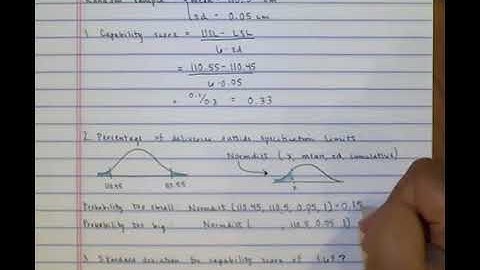 Random sample mean = 110.5 cm
sd = 0.05 cm
1. Capability score = USL - LSL
6·sd
= 110.55 - 110.45
6·0.05
= 0.1/0.3 = 0.33
2. Percentage of deliveries outside specification limits
Normdist (x, mean, sd, cumulative)
110.45
x
Probability too small Normdist (110.45, 110.5, 0.05, 1) = 0.15
Probability too big Normdist ( , 110.5, 0.05, 1)
3. Standard deviation for capability score of 1.67?